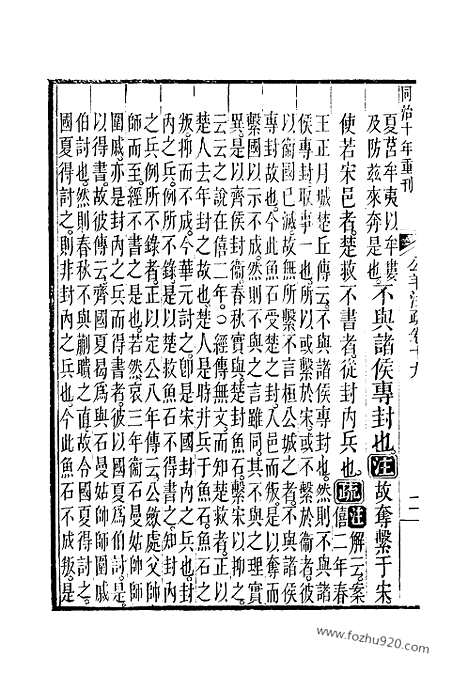 同治十年重刊 公羊注疏卷十九 二
夏莒牟夷以牟婁
及防茲來奔是也不與諸侯專封也。注故奪繫于宋。
使若宋邑者。楚救不書者。從封內兵也。疏注解云。案
僖二年春
王正月。城楚丘。傳云。不與諸侯專封也。然則不與諸
侯專封取事一也。所以或繫於宋。或不繫於衞者。彼
以衞國已滅。故無所繫。不言桓公城之者。不與諸侯
專封故也。今此魚石受楚之封。入邑而叛。是以奪而
繫國以示不成。然則不與之言雖同。其不與之理實
異。是以齊侯封衞。春秋實與。楚封魚石。繫宋以抑之。
云云之說在僖二年。○經傳無文而知楚救者。正以
楚人去年封之故也。楚人是時并兵于魚石。魚石之
叛。抑而不成。今華元討之。即是宋國封內之兵也。封
內之兵。例所不錄。是以楚救魚石不得書之。知封內
之兵。例所不錄者。正以定公八年傳云。公斂處父帥
師而至。經不書之是也。若然。哀三年衞石曼姑帥師
圍戚。亦是封內之兵而得書者。彼以國夏為伯討。是
以得書。故彼傳云。齊國夏曷為與石曼姑帥師圍戚
伯討也。然則春秋不與蒯聵之直。故令國夏得討之。
國夏得討之。則非封內之兵也。今此魚石不成叛。是
www.fozhu920.com